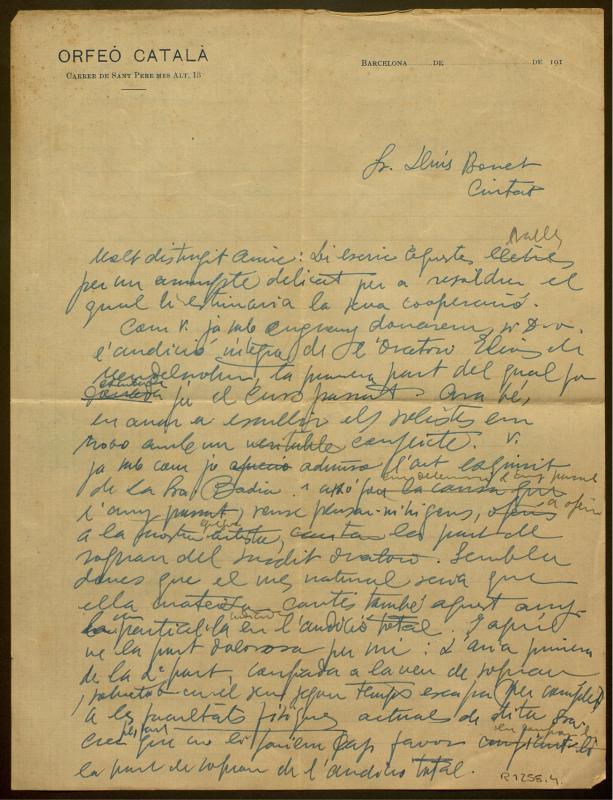 ORFEÓ CATALÀ
CARRER DE SANT PERE MES ALT, 13
BARCELONA DE DE 191
Sr. Lluis Bonet
Ciutat
Molt distingit amic: Li escric aquestes lletres
per un assumpte delicat per a resoldre el
qual li estimaria la seva cooperació.
Com V. ja sab enguany donarem, si D. v.
l'audició íntegra de l'oratori Elias de
Mendelssohn la primera part del qual ja
ja el curs passat. Ara bé,
en anar a escullir els solistes em
trovo amb un veritable conflicte. V.
ja sab com jo admiro l'art exquisit
de la Sra. Badia. això la causa que
l'any passat, sense pensar-m'hi gens, a oferir
a la nostra artista, la part de
sopran del susdit oratori. Sembla
doncs que el mes natural seria que
ella mateixa cantés també aquest any
en l'audició total. I aquí
ve la part dolorosa per mi: L'aria primera
de la 2ª part, confiada a la veu de sopran
en el seu segon temps escapa per complet
a les facultats físiques actuals de dita Sra.
crec que no li fariem cap favor confiant-li
la part de sopran de l'audició total.
R1256.4.